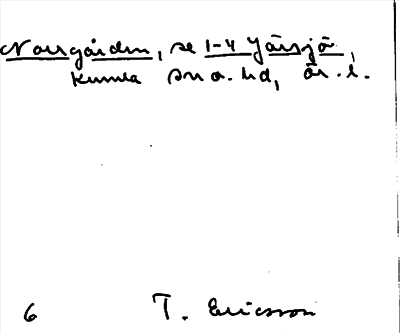 Norrgården, se 1-4 Järsjö,
Kumla sn o. hd, ör. l.
6 T. Ericsson